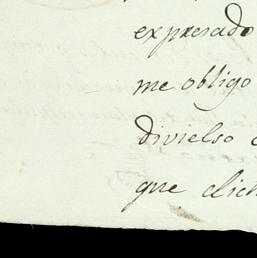 expresado
me obligo
divielso
que dich